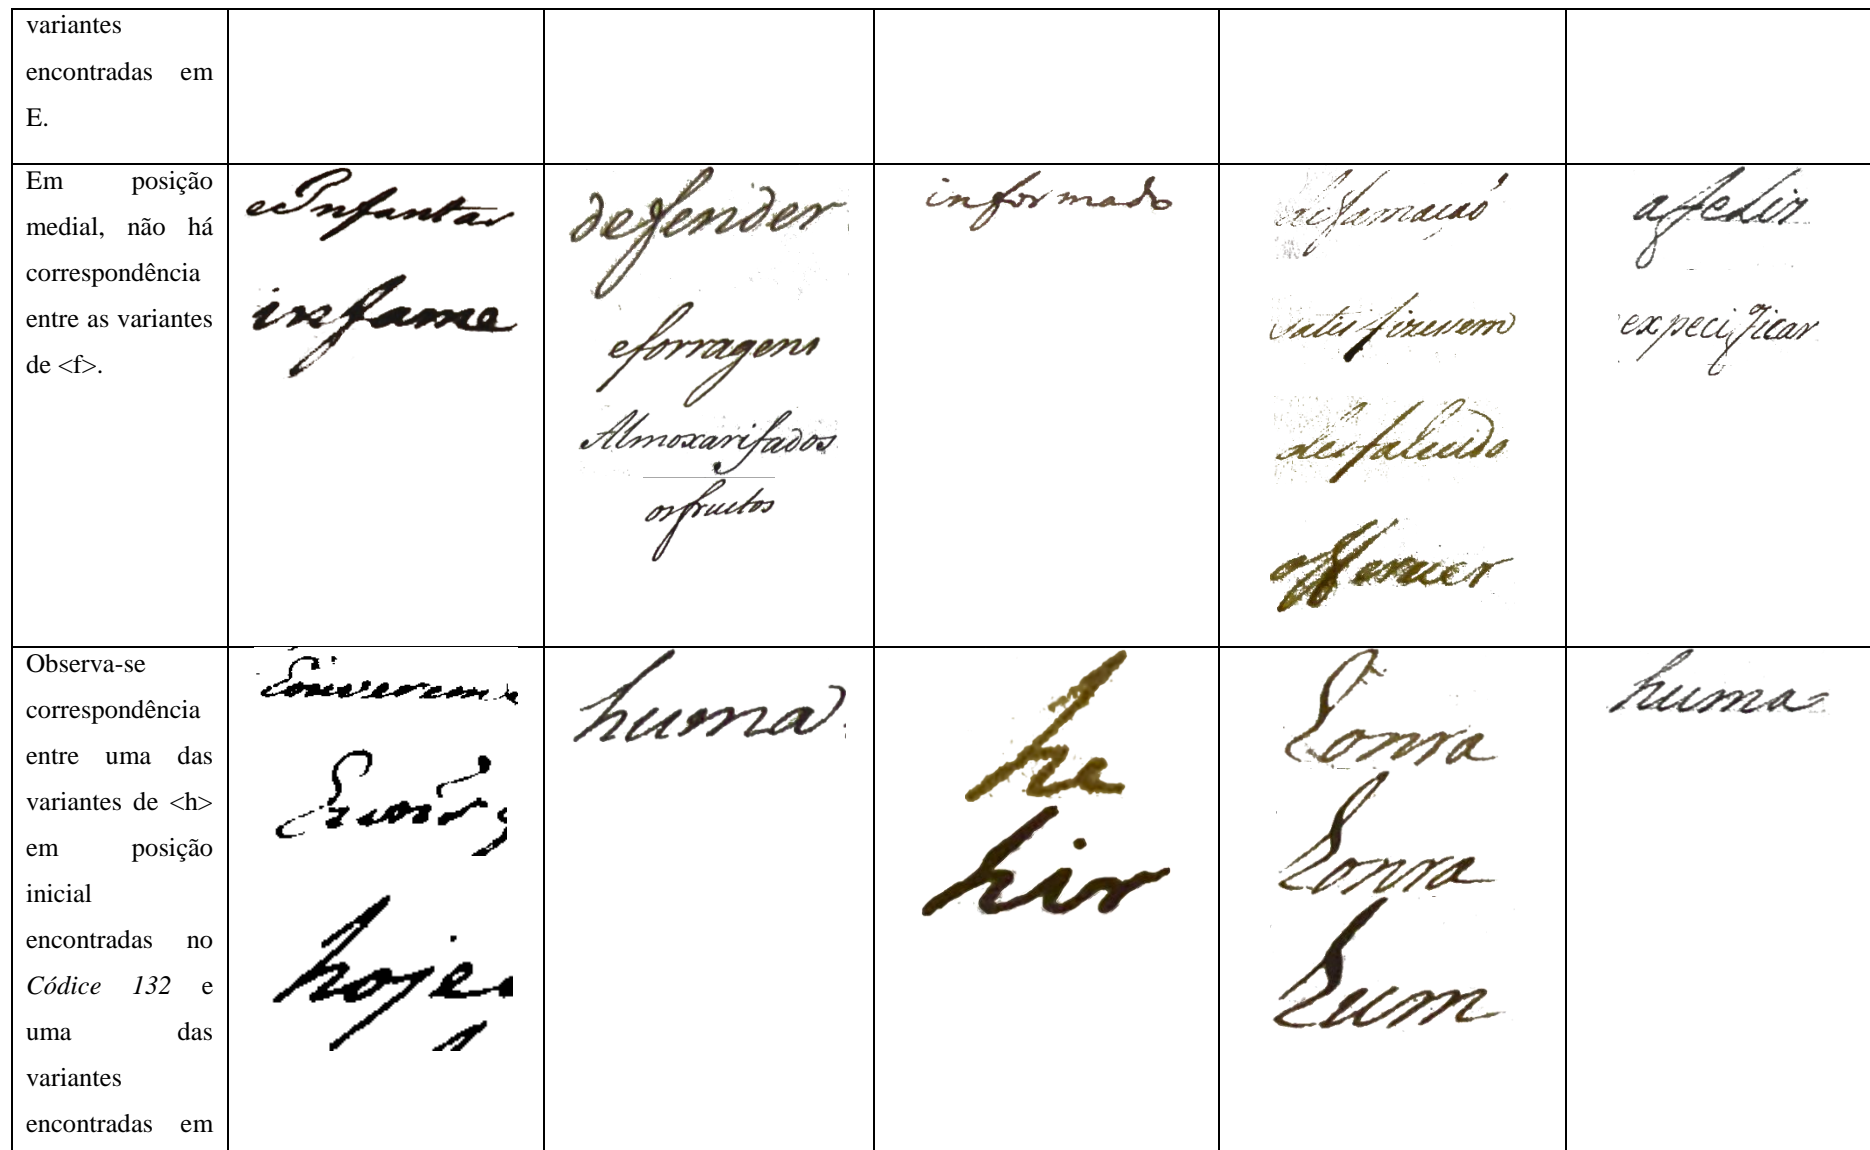 variantes
encontradas em
E.
Em posição
medial, não há
correspondência
entre as variantes
de <f>.
eInfantar
infame
defender
eforragens
Almoxarifados
osfructos
informado
satisfizerem
desfalecido
afedir
expecificar
Observa-se
correspondência
entre uma das
variantes de <h>
em posição
inicial
encontradas no
Códice 132 e
uma das
variantes
encontradas em
hoje
huma
he
hir
honra
honra
hum
huma